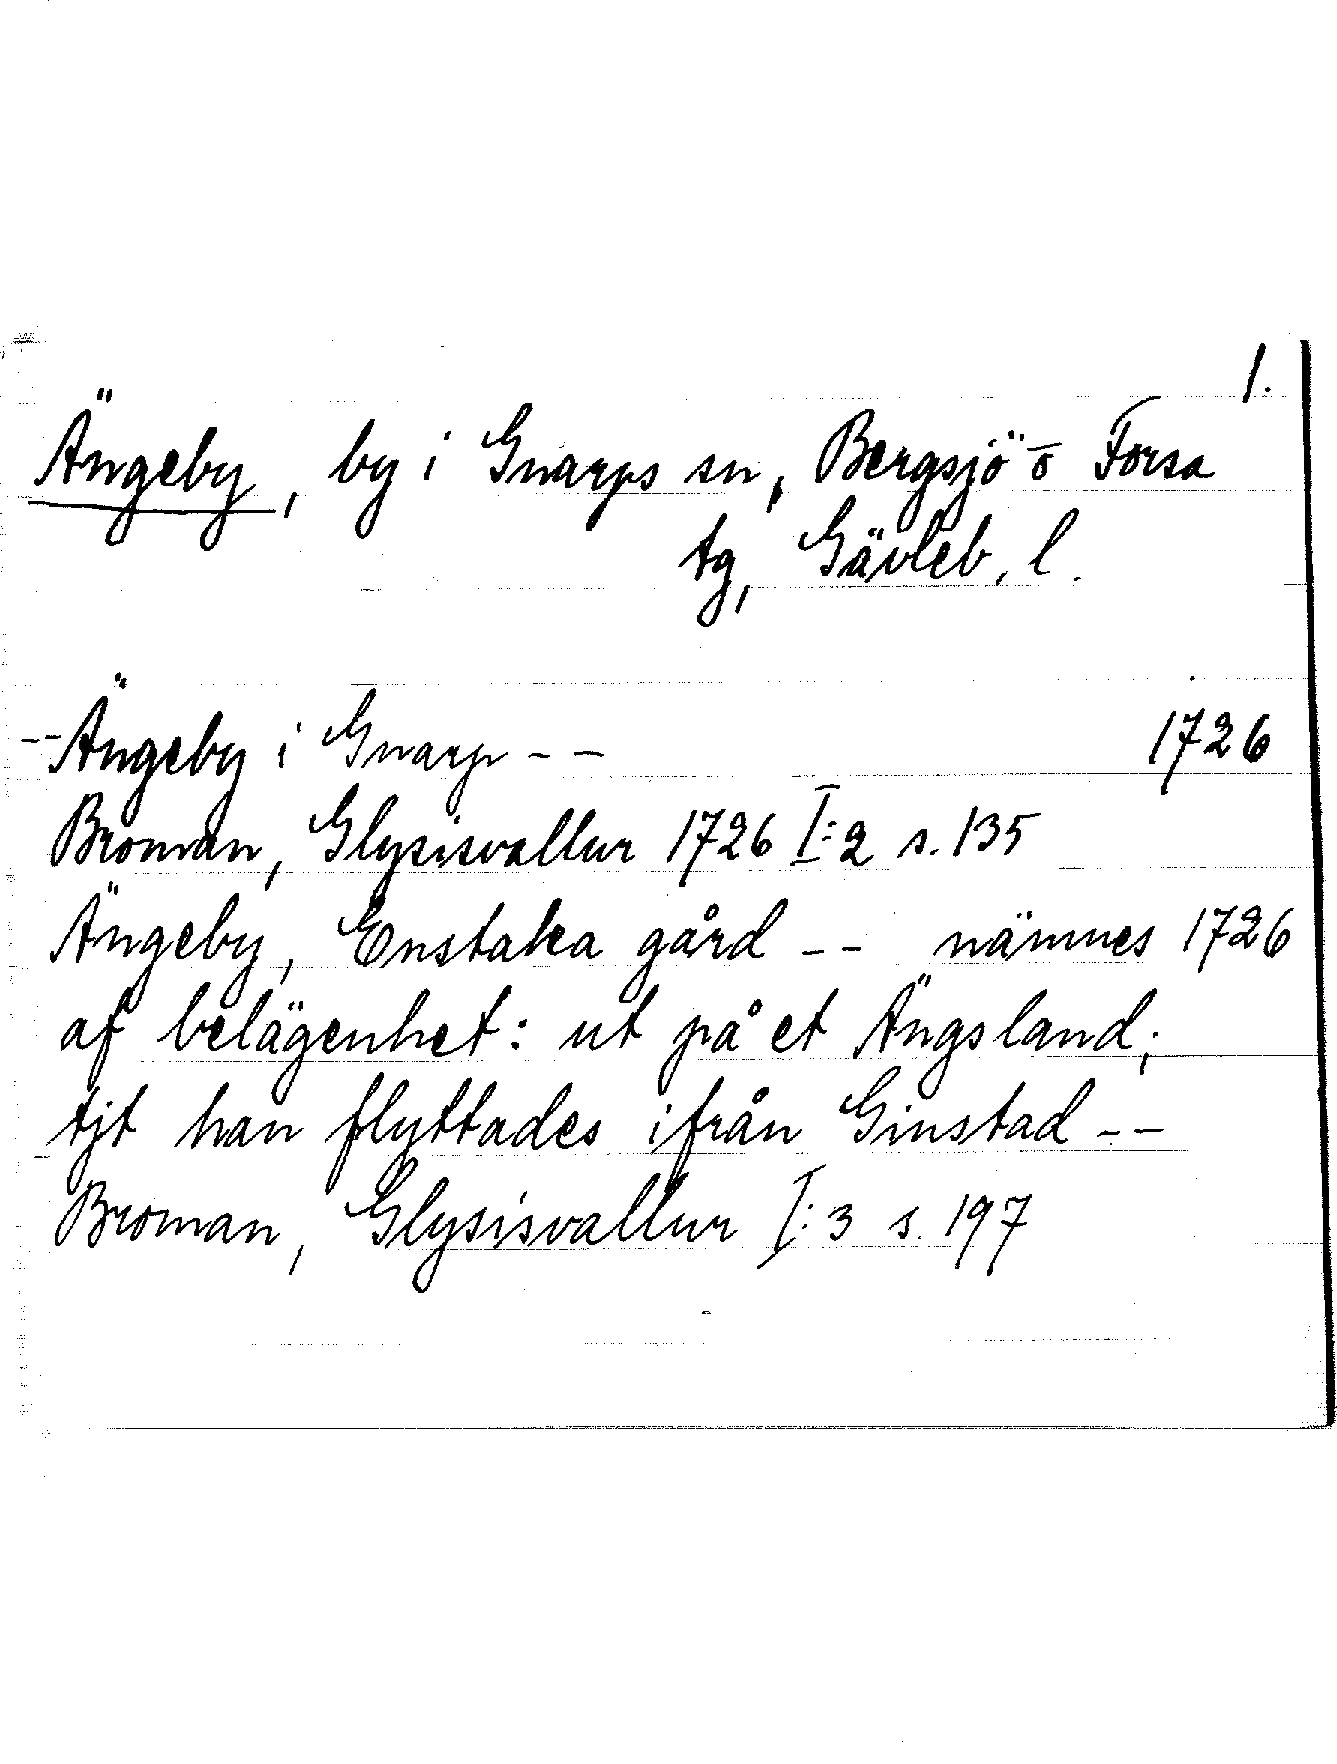 1.
Ängeby, by i Gnarps sn, Bergsjö o Forsa
tg, Gävleb. l.
-- Ängeby i Gnarp -- 1726
Broman, Glysisvallur 1726 I:2 s. 135
Ängeby, Enstaka gård -- nämnes 1726
af belägenhet: ut på et Ängsland;
tjt han flyttades ifrån Ginstad --
Broman, Glysisvallur I:3 s. 197